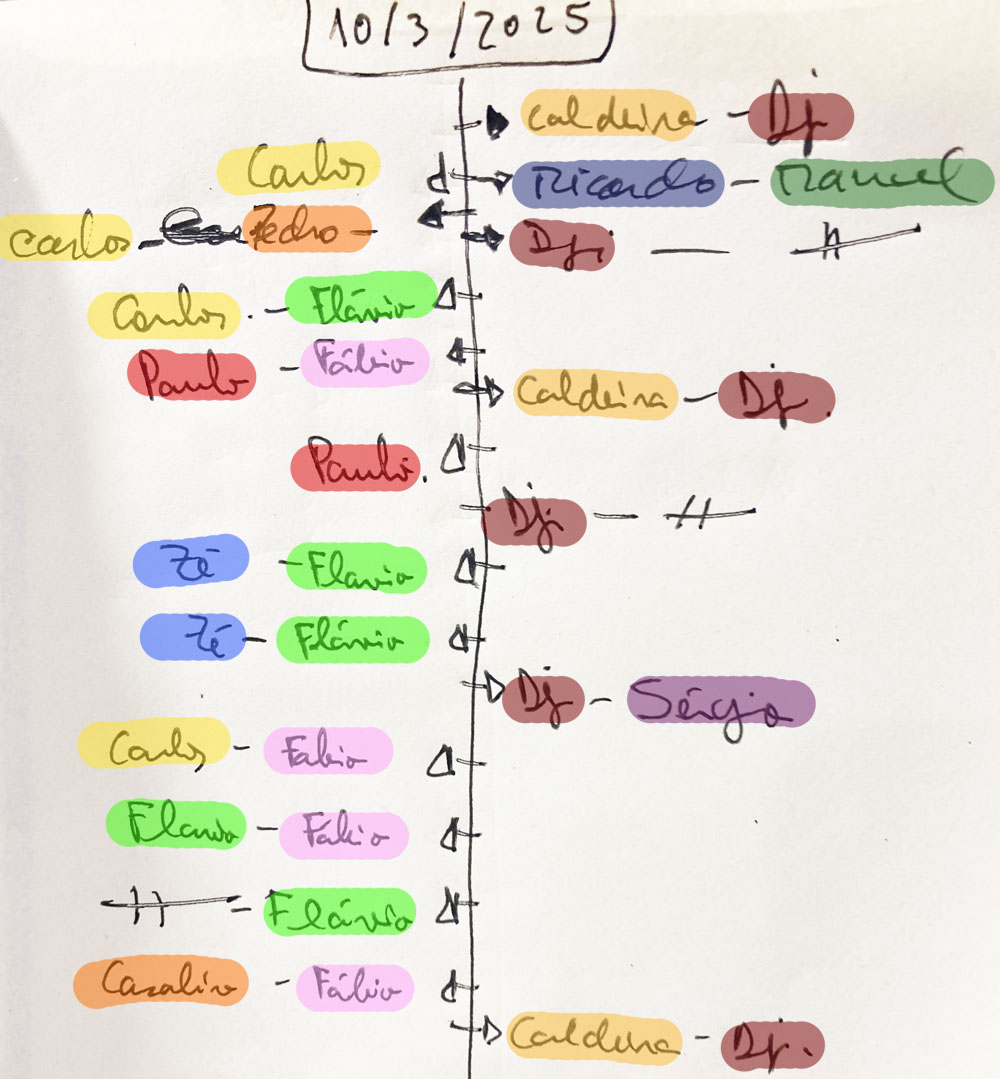 10/3/2025
Caldeira - Dj
Carlos
Ricardo - Manuel
Carlos - Pedro -
Dj. —
Carlos. - Flávio
Paulo - Fábio
Caldeira - Dj.
Paulo.
Dj. —
Zé - Flavio
Zé - Flávio
Dj - Sérgio
Carlos - Fabio
Flavio - Fábio
- Flávio
Casalino - Fábio
Caldeira - Dj.